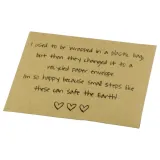 I used to be wrapped in a plastic bag,
but then they changed it to a
recycled paper envelope.
Im so happy because small steps like
these can safe the Earth!